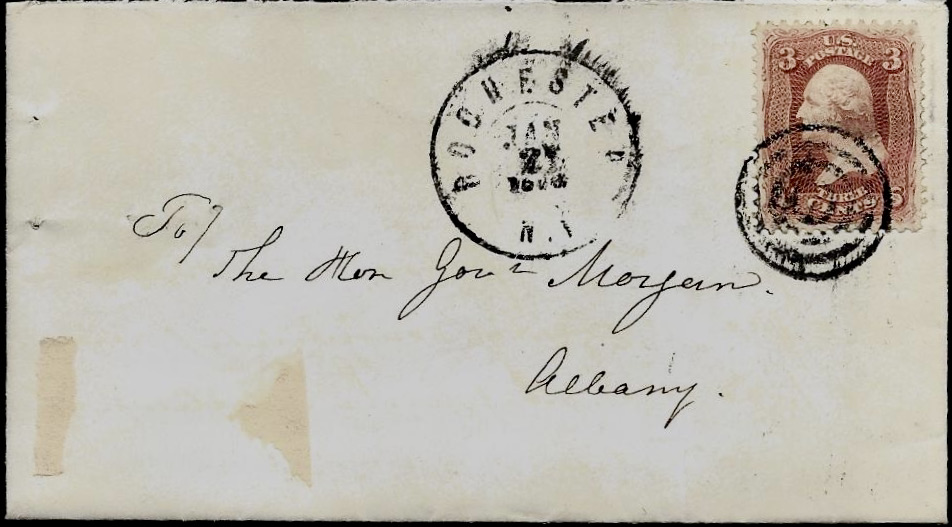 3 U.S. 3
POSTAGE
THREE
CENTS
ROCHESTER
JAN
21
N.Y
To/
The Hon Govr Morgan.
Albany.